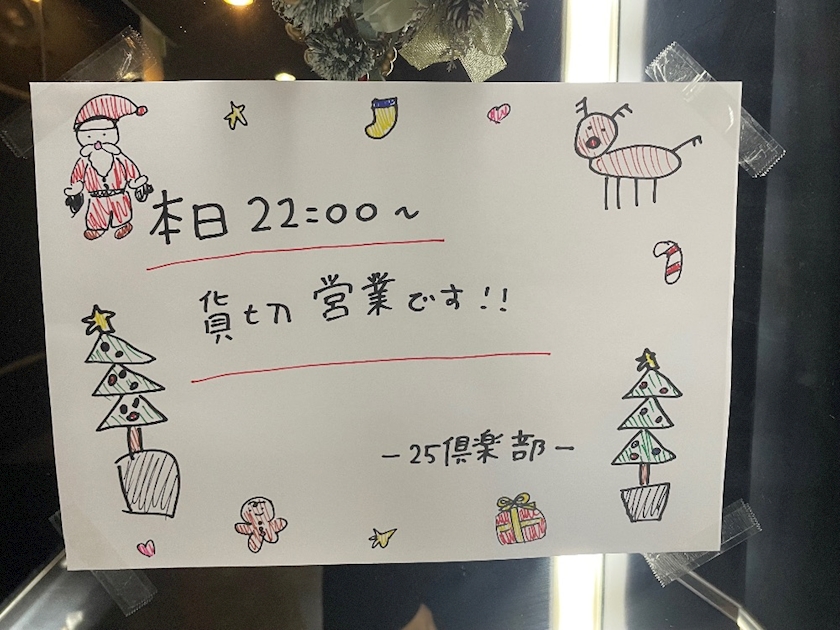 本日 22:00~
貨切 営業です!!
-25倶楽部-